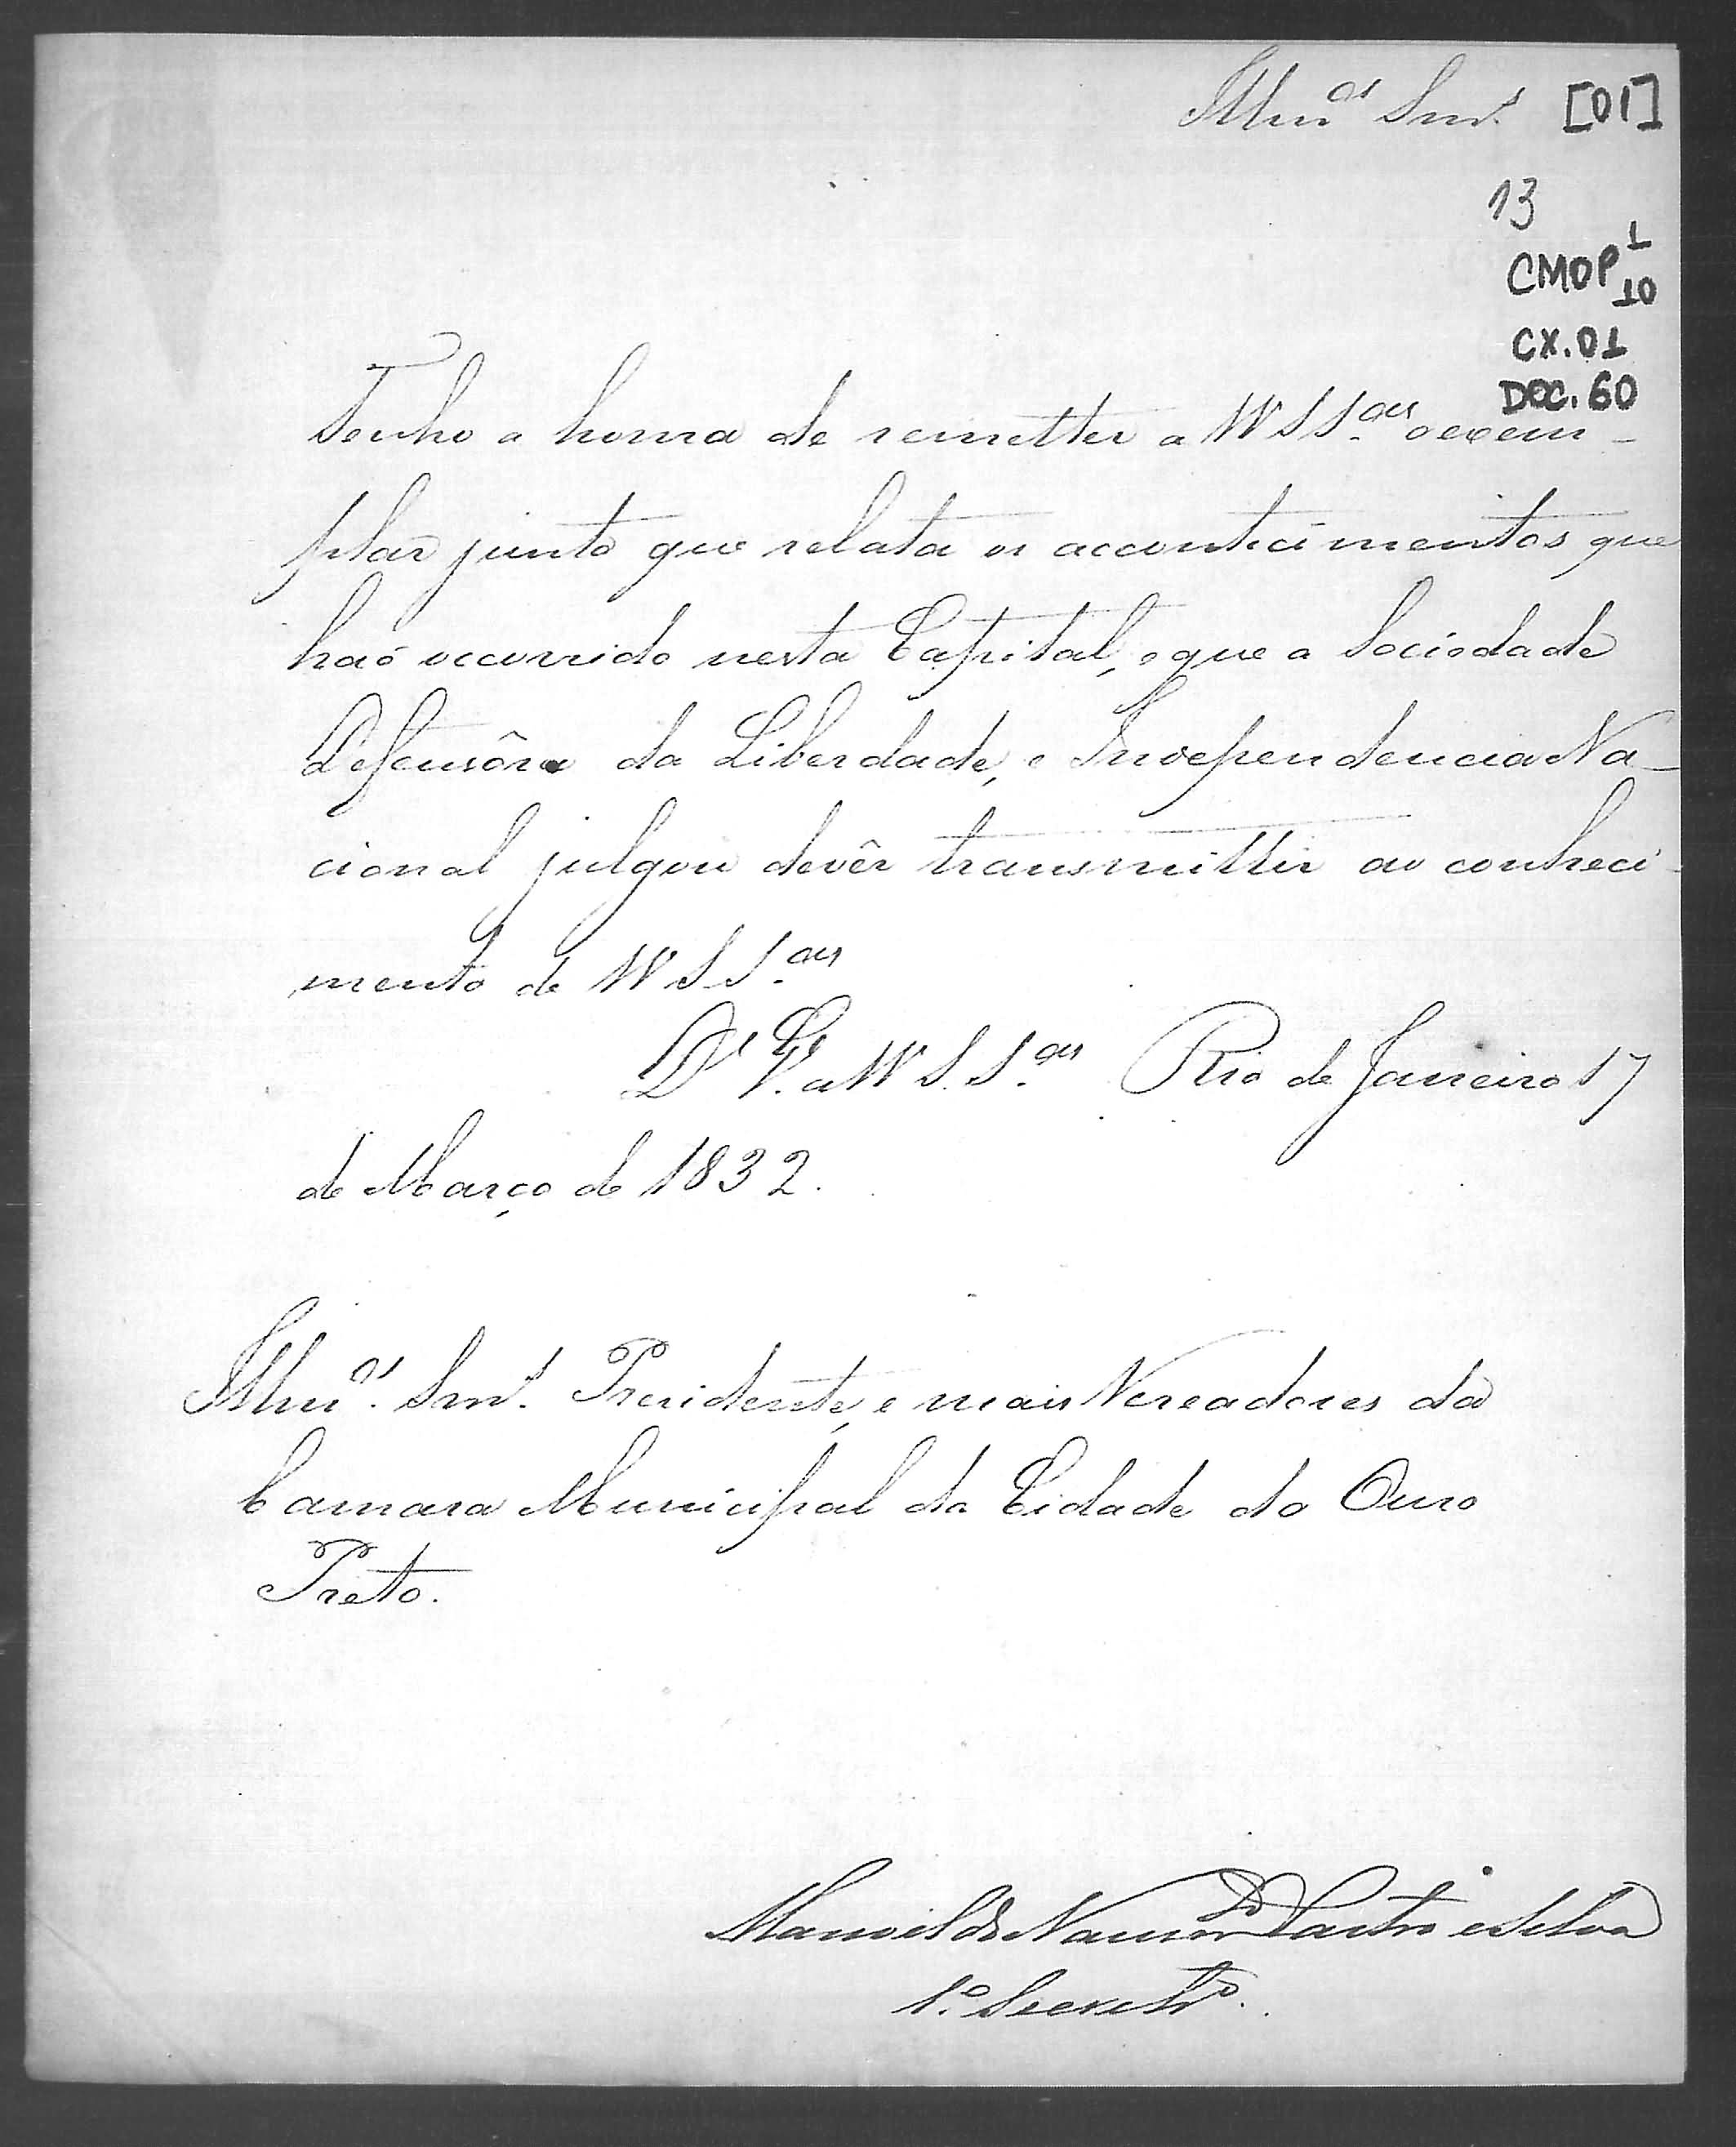 Illm.os Snr.s [01]
13
CMOP 1 10
CX. 01
DOC. 60
Tenho a honra de remetter a VV SS.as o exem-
plar junto que relata os accontecimentos que
haõ occorrido nesta Capital, e que a Sociedade
Defensôra da Liberdade, e Independencia Na-
cional julgou devêr transmittir ao conheci-
mento de VV SS.as
D.s G.e a VV S.S.as Rio de Janeiro 17
de Março de 1832.
Illm.os Snr.s Prezidente, e mais Vereadores da
Camara Municipal da Cidade do Ouro
Preto.
Manoel do Nascim.to Castro e Silva
1.o Secretr.o